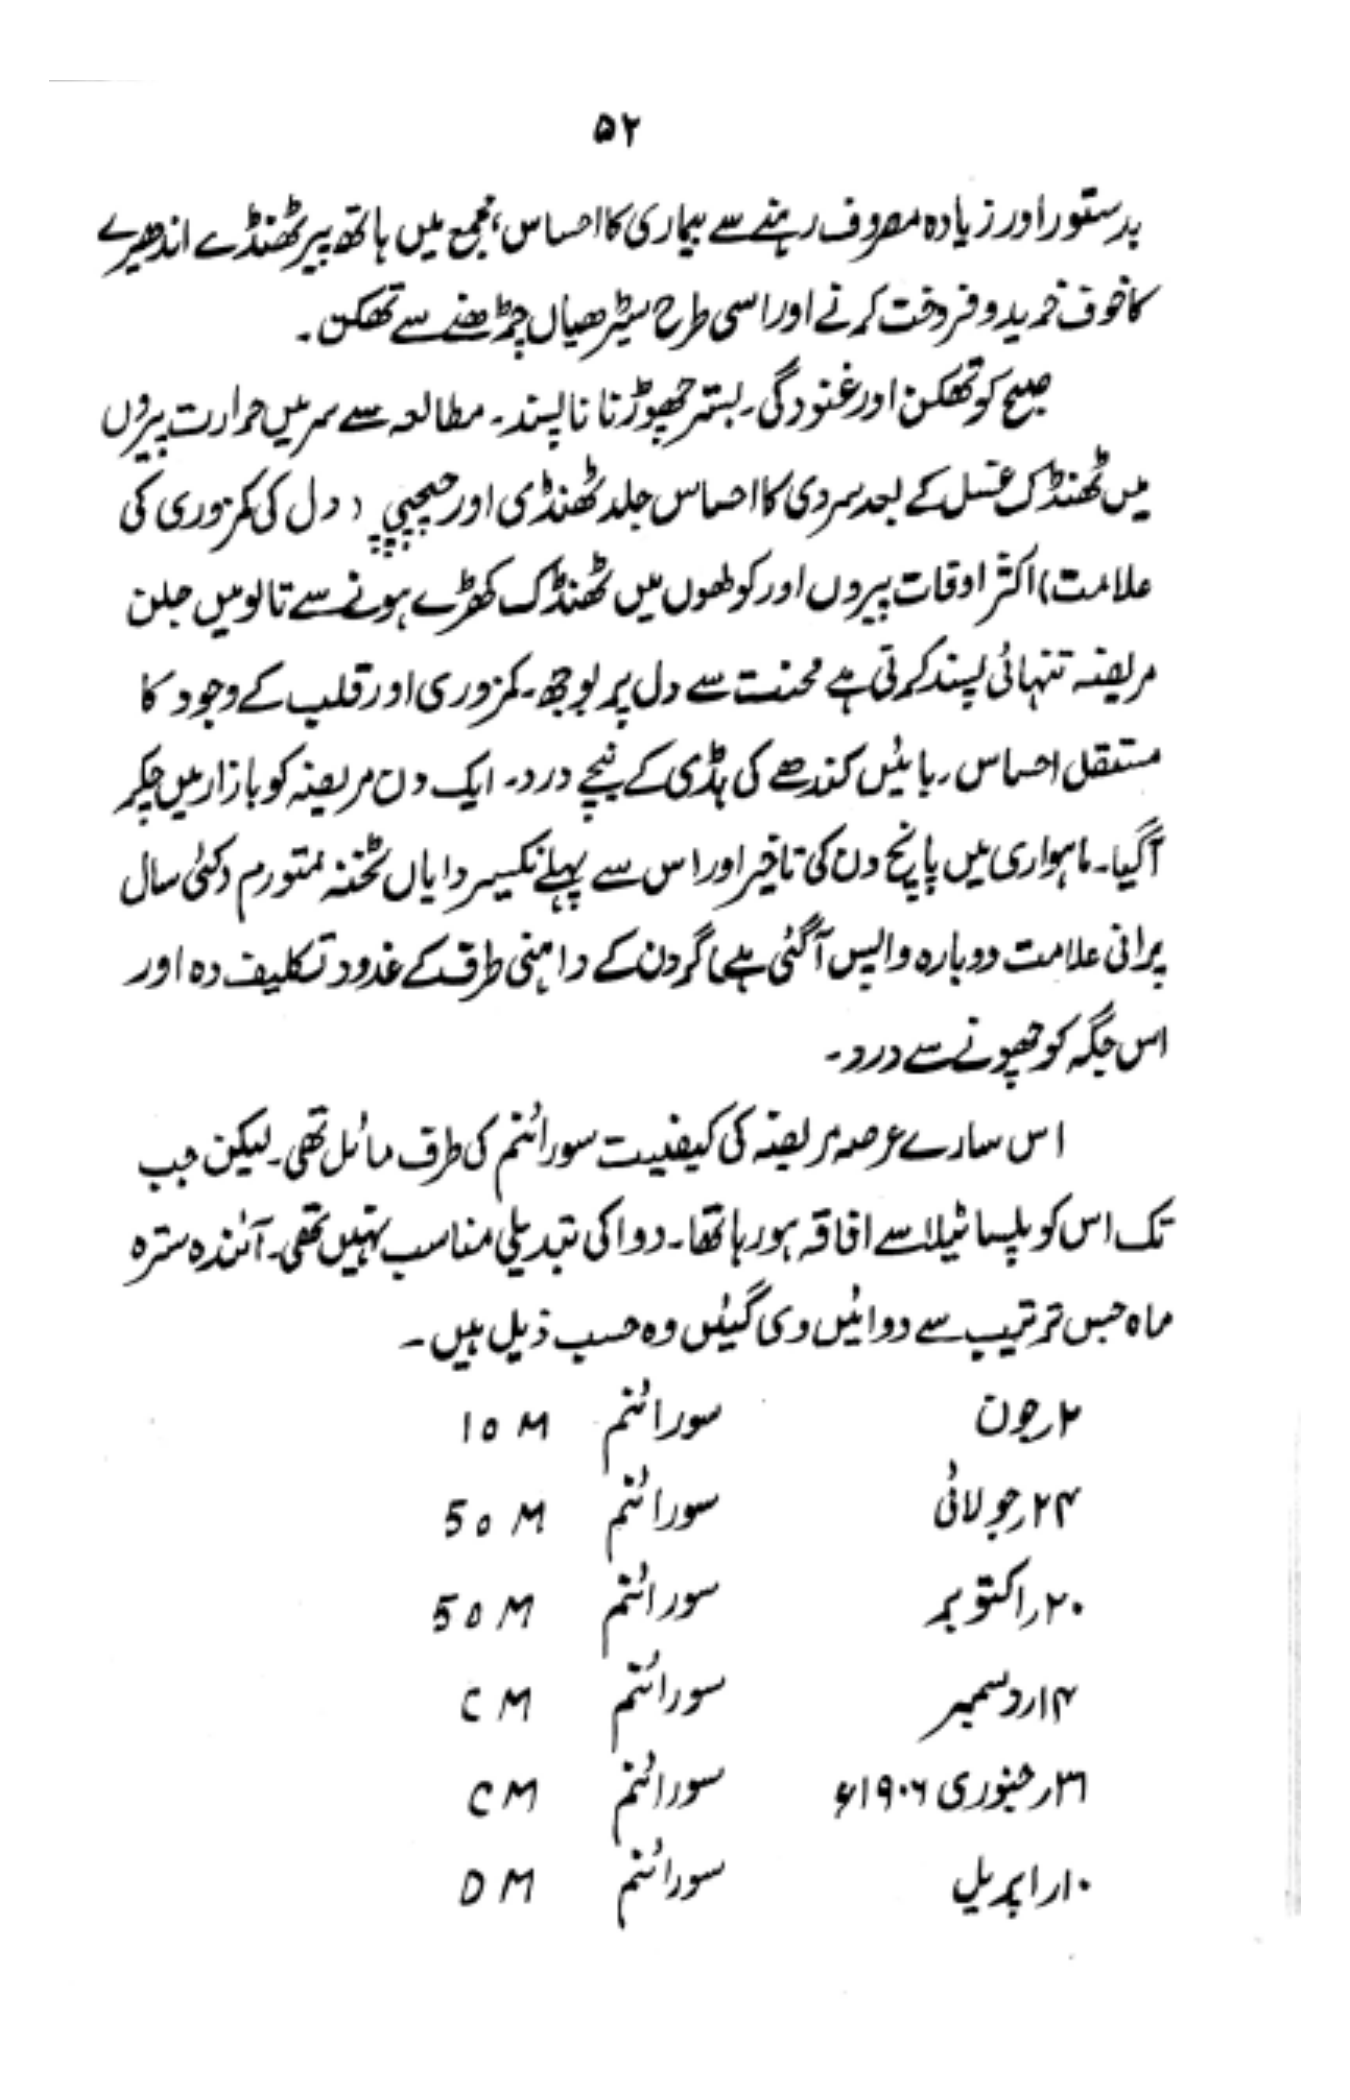 ۵۲
بدستور اور زیادہ مصروف رہنے سے بیماری کا احساس، مجمع میں ہاتھ پیر ٹھنڈے اندھیرے
کا خوف خرید و فروخت کرنے اور اسی طرح سیڑھیاں چڑھنے سے تھکن۔
صبح کو تھکن اور غنودگی۔ بستر چھوڑنا ناپسند۔ مطالعہ سے سر میں حرارت پیروں
میں ٹھنڈک غسل کے بعد سردی کا احساس جلد ٹھنڈی اور چپچپی (دل کی کمزوری کی
علامت) اکثر اوقات پیروں اور کولھوں میں ٹھنڈک کھڑے ہونے سے تالو میں جلن
مریضہ تنہائی پسند کرتی ہے محنت سے دل پر بوجھ۔ کمزوری اور قلب کے وجود کا
مستقل احساس۔ بائیں کندھے کی ہڈی کے نیچے درد۔ ایک دن مریضہ کو بازار میں چکر
آگیا۔ ماہواری میں پانچ دن کی تاخیر اور اس سے پہلے نکسیر دایاں ٹخنہ متورم (کئی سال
پرانی علامت دوبارہ واپس آگئی ہے) گردن کے داہنی طرف کے غدود تکلیف دہ اور
اس جگہ کو چھونے سے درد۔
اس سارے عرصہ مریضہ کی کیفیت سورائنم کی طرف مائل تھی۔ لیکن جب
تک اس کو پلساٹیلا سے افاقہ ہو رہا تھا۔ دوا کی تبدیلی مناسب نہیں تھی۔ آئندہ سترہ
ماہ جس ترتیب سے دوائیں دی گئیں وہ حسب ذیل ہیں۔
۲؍جون سورائنم 10 M
۲۴؍جولائی سورائنم 50 M
۲۰؍اکتوبر سورائنم 50 M
۱۴؍دسمبر سورائنم C M
۳۱؍جنوری ۱۹۰۶ء سورائنم C M
۱۰؍اپریل سورائنم D M